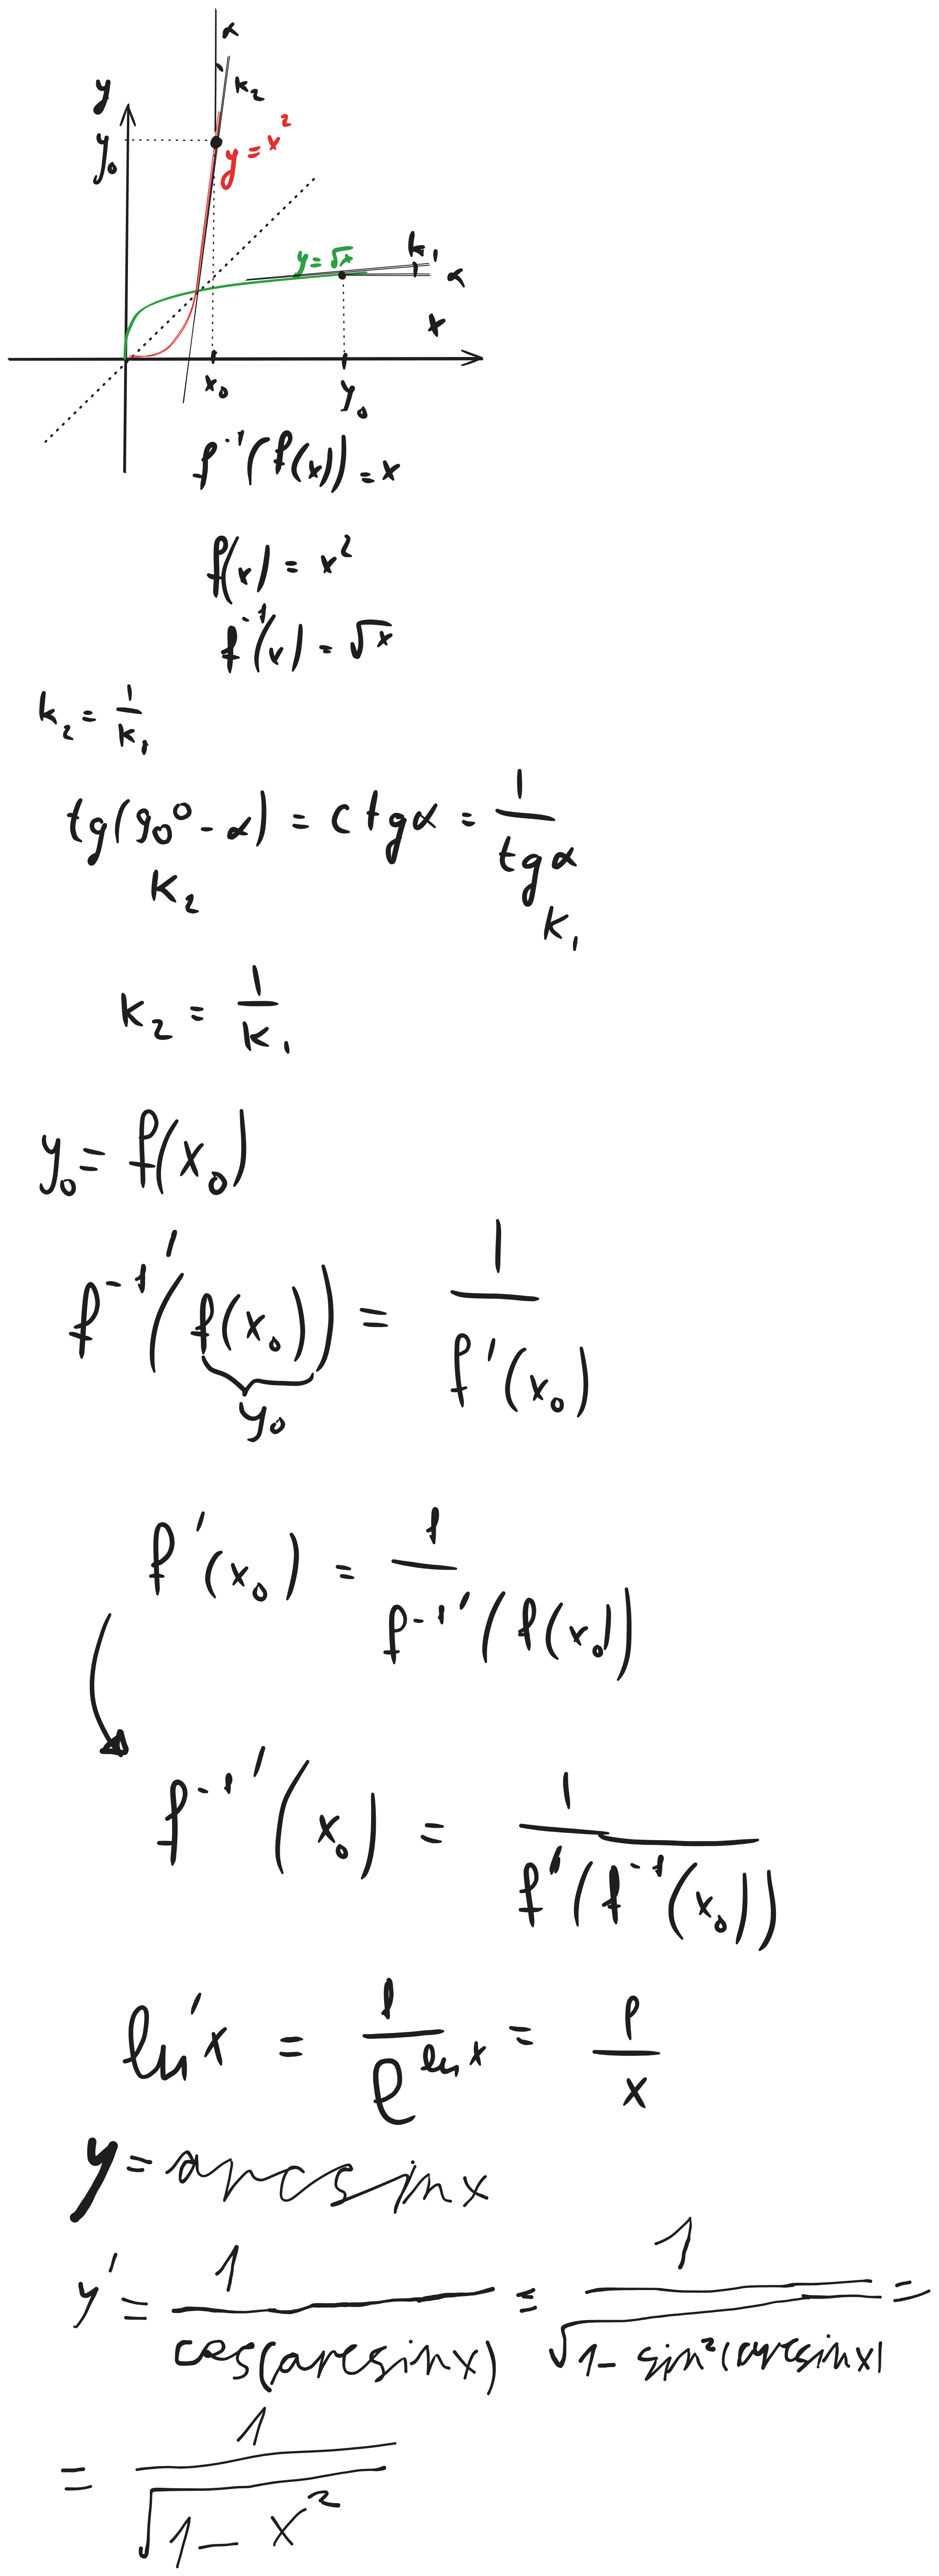 α
k₂
y
y₀
y = x²
y = √x
k₁
α
x
x₀
y₀
f⁻¹(f(x)) = x
f(x) = x²
f⁻¹(x) = √x
k₂ = 1/k₁
tg(90° - α) = ctgα = 1/tgα
k₂
k₁
k₂ = 1/k₁
y₀ = f(x₀)
f⁻¹'(f(x₀)) = 1/f'(x₀)
y₀
f'(x₀) = 1/f⁻¹'(f(x₀))
f⁻¹'(x₀) = 1/f'(f⁻¹(x₀))
ln'x = 1/e^(ln x) = 1/x
y = arcsin x
y' = 1/cos(arcsin x) = 1/√(1 - sin²(arcsin x)) =
= 1/√(1 - x²)